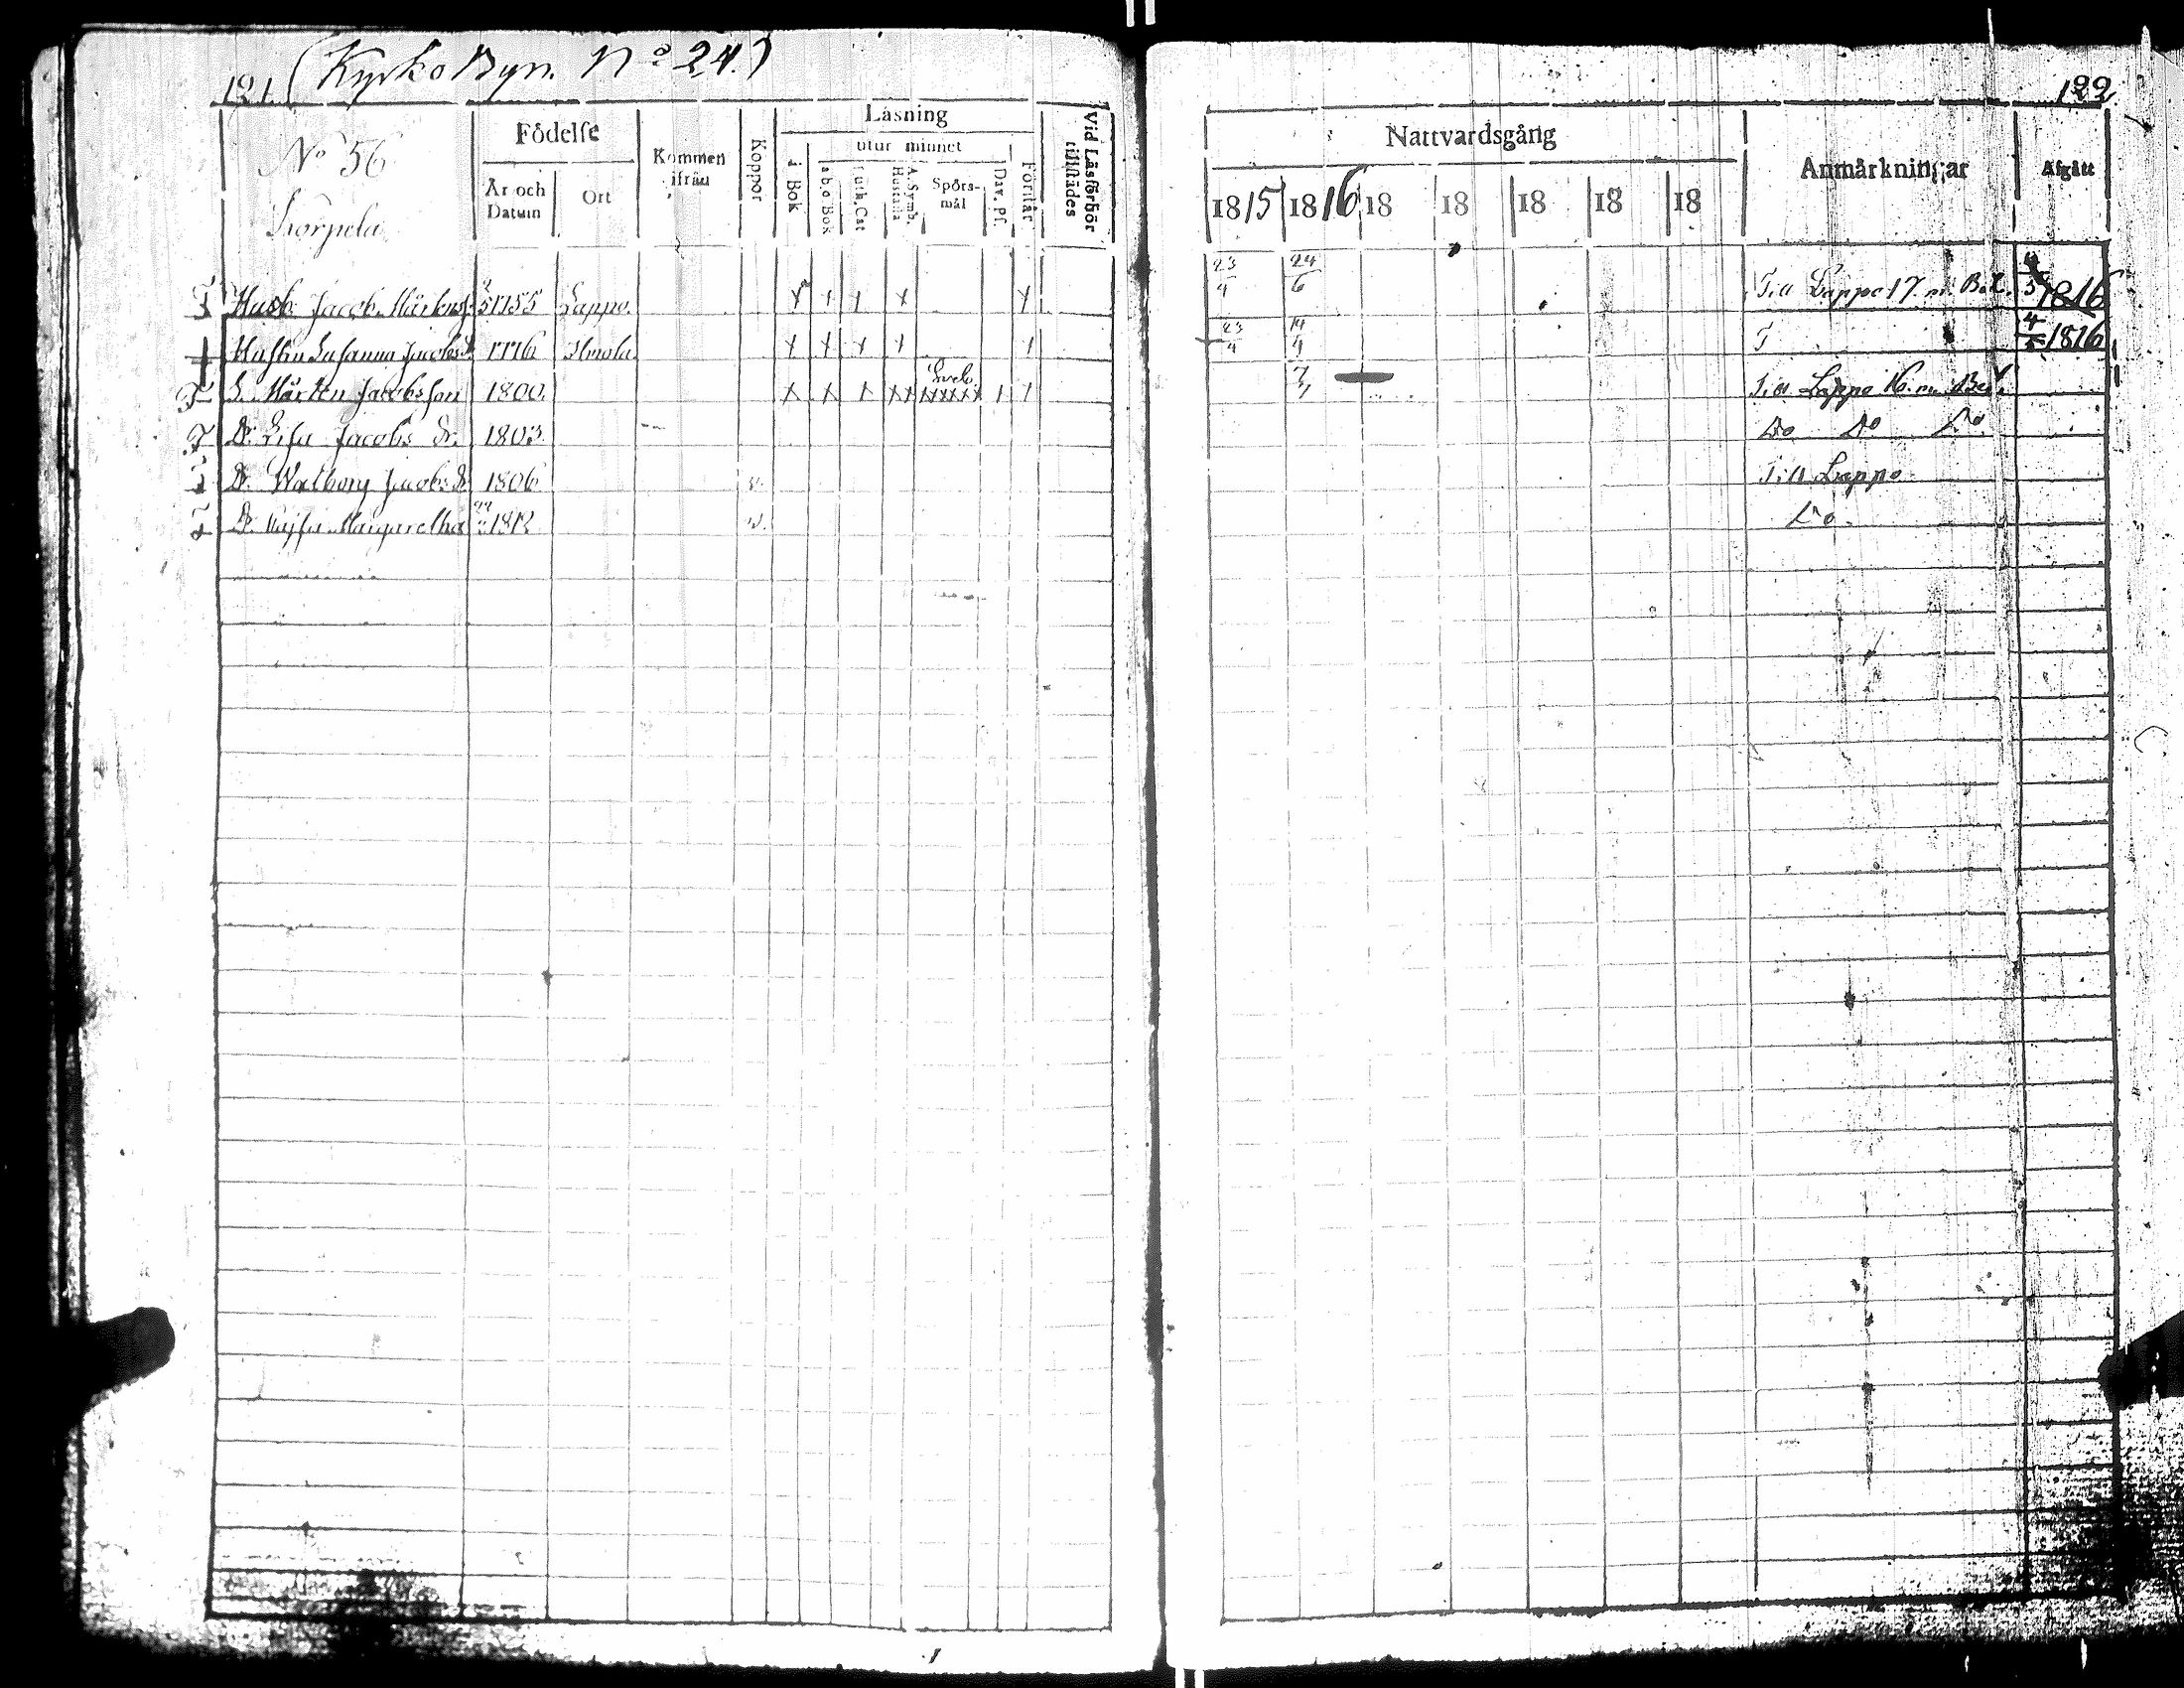 121. (Kyrko Byn. No 24.)
No 56
Korpela
Födelse
År och Datum
Ort
Kommen ifrån
Koppor
Läsning
i Bok
utur minnet
a b c Bok
Luth. Cat
A. Symb. Hustafla
Spörsmål
Dav. Ps.
Förstår
Vid Läsförhör tillstädes
T Husb. Jacob Mårtens 1755 Lappo. x x x x x
Hustru Susanna Jacobs D 1776 Ilmola x x x x x
T S. Mårten Jacobsson 1800. x x x xx xxxxx x x
T Dr. Lisa Jacobs Dr. 1803
T Dr. Walborg Jacobs Dr 1806
Dr. Cajsa Margaretha 1812
122.
Nattvardsgång
1815 1816 18 18 18 18 18
Anmärkningar
Afgått
23/4 24/6 Till Lappo 17. m. Bet. 1816
23/4 14/4 T 4/5 1816
7/7 Till Lappo 16. m. Bet.
Do Do Do
Till Lappo
Do.